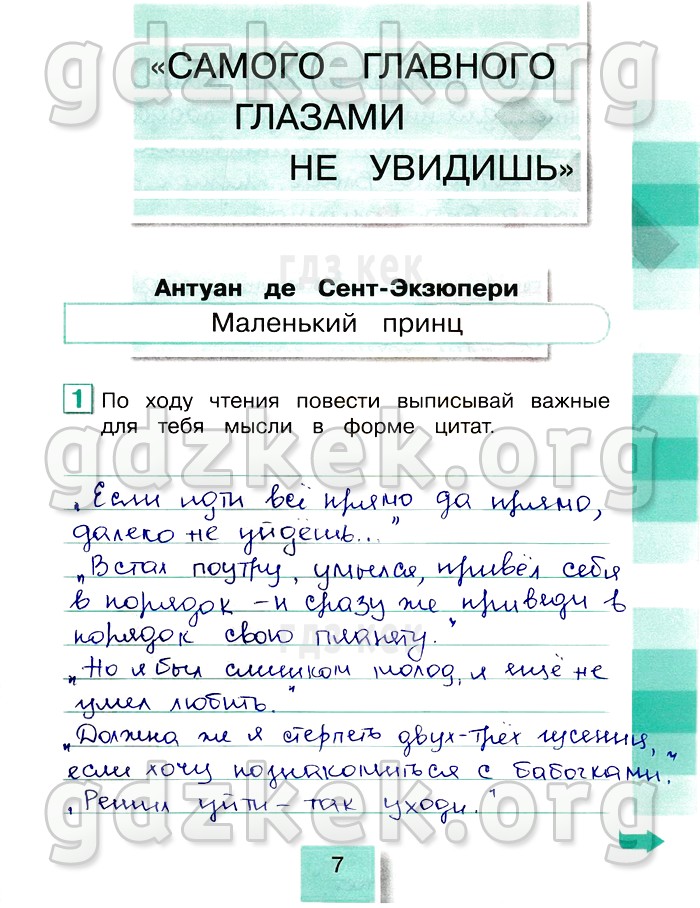 «САМОГО ГЛАВНОГО
ГЛАЗАМИ
НЕ УВИДИШЬ»
gdzkek.org
гдз кек
Антуан де Сент-Экзюпери
Маленький принц
1 По ходу чтения повести выписывай важные
для тебя мысли в форме цитат.
gdzkek.org
„Если идти всё прямо да прямо,
далеко не уйдёшь..."
„Встал поутру, умылся, привёл себя
в порядок – и сразу же приведи в
порядок свою планету."
гдз кек
„Но я был слишком молод, я ещё не
умел любить."
„Должна же я стерпеть двух-трёх гусениц,
если хочу познакомиться с бабочками."
„Решил уйти – так уходи."
gdzkek.org
7